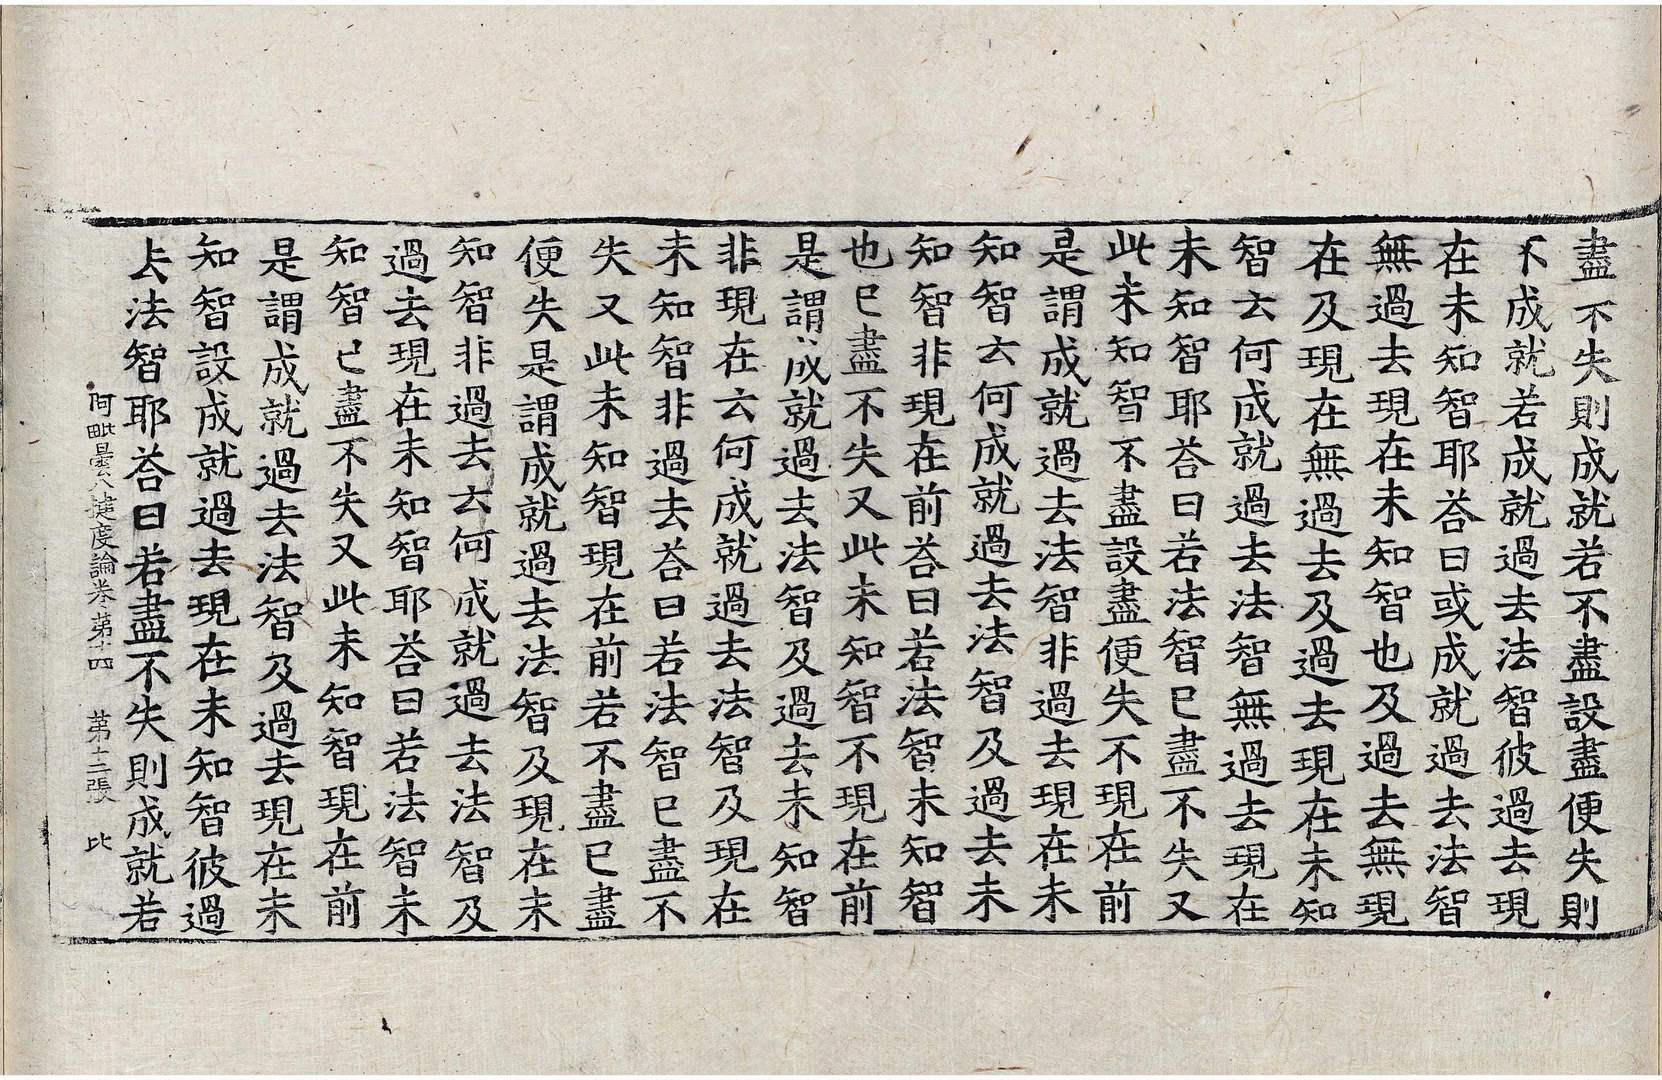 盡不失則成就若不盡設盡便失則
不成就若成就過去法智彼過去現
在未知智耶荅曰或成就過去法智
無過去現在未知智也及過去無現
在及現在無過去及過去現在未知
智云何成就過去法智無過去現在
未知智耶荅曰若法智已盡不失又
此未知智不盡設盡便失不現在前
是謂成就過去法智非過去現在未
知智云何成就過去法智及過去未
知智非現在前荅曰若法智未知智
也已盡不失又此未知智不現在前
是謂成就過去法智及過去未知智
非現在云何成就過去法智及現在
未知智非過去荅曰若法智已盡不
失又此未知智現在前若不盡已盡
便失是謂成就過去法智及現在未
知智非過去云何成就過去法智及
過去現在未知智耶荅曰若法智未
知智已盡不失又此未知智現在前
是謂成就過去法智及過去現在未
知智設成就過去現在未知智彼過
去法智耶荅曰若盡不失則成就若
阿毗曇八揵度論卷第十四 第十二張 比